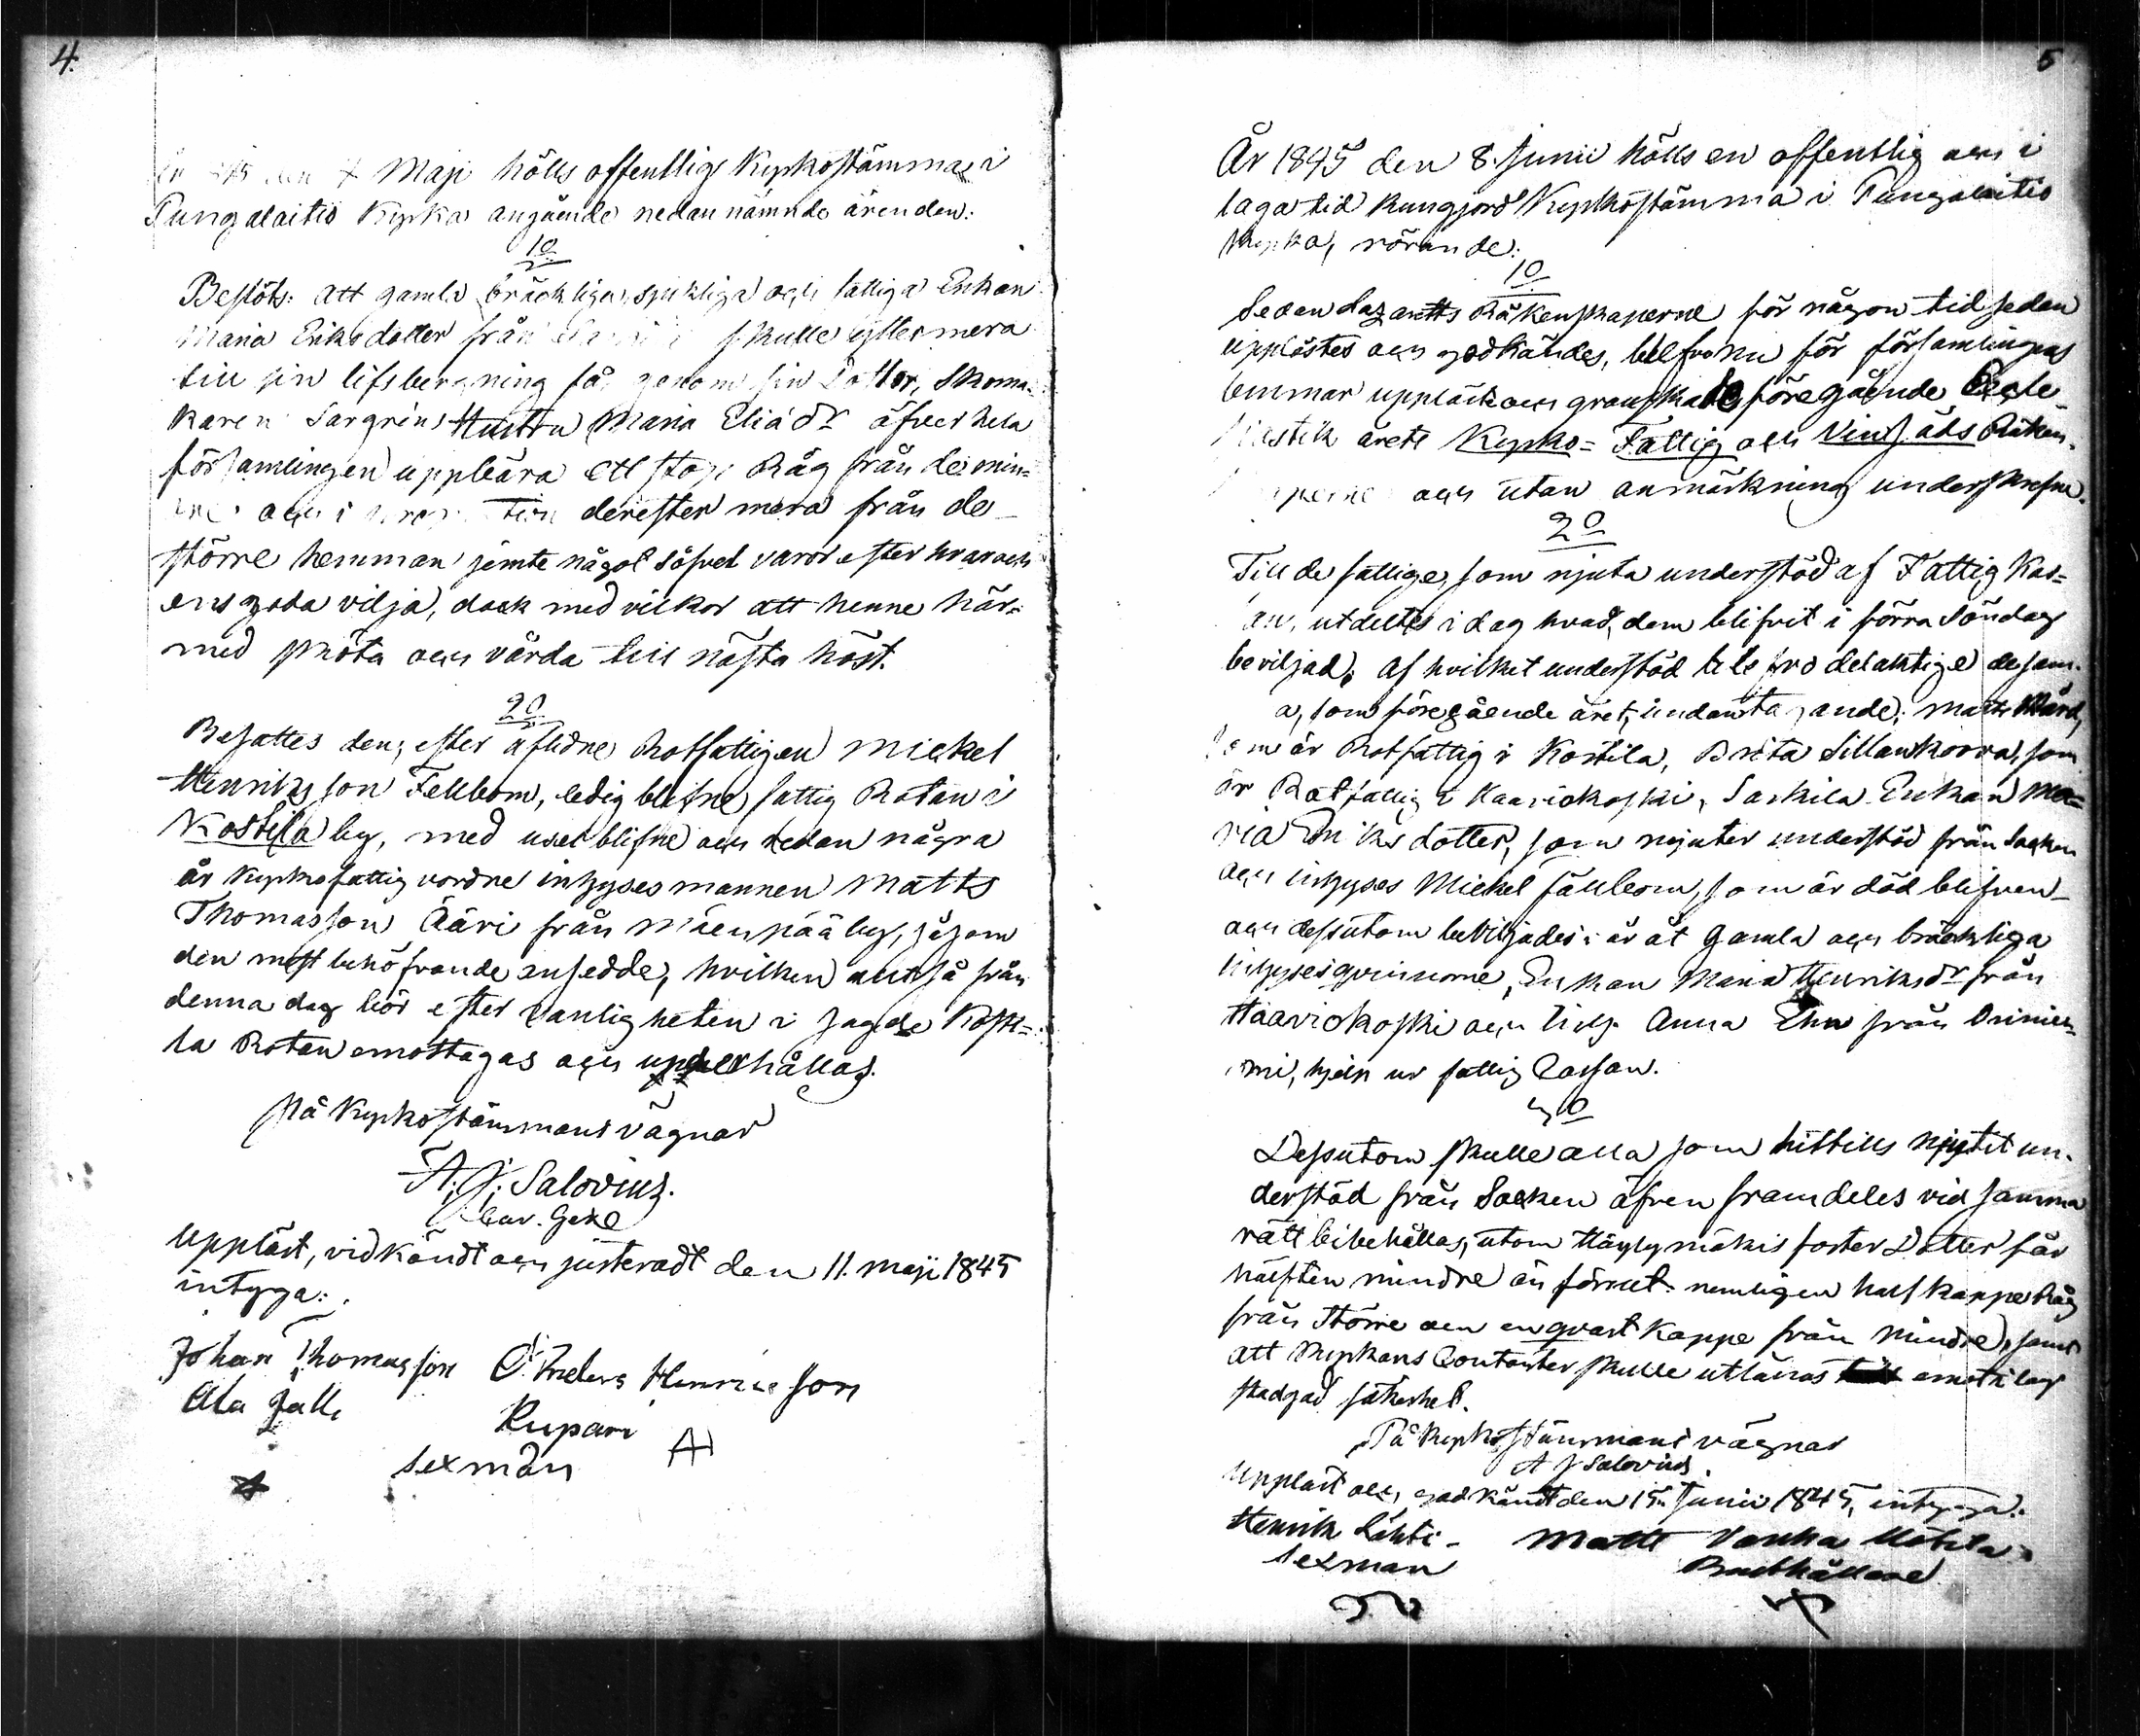 4.
Maji hölls offentlig Kyrkostämma i
Pungalaitio Kyrka angående nedannämnde ärenden:
1o
Beslöts: att gamla bräckliga, sjukliga och fattiga Enkan
Maria Eriksdotter från skulle yttermera
till sin lifsbergning få genom sin Dotter, Skoma-
karen Sargrens Hustru Maria Eliædr öfver hela
församlingen uppbära ett stop Råg från de min-
och i derefter mera från de
större hemman jemte något söfvel varor efter hvar och
ens goda vilja, dock med vilkor att henne här-
med sköta och vårda till nästa höst.
2o
Besattes den, efter aflidne Rotfattigen Mickel
Henriksson Fellbom, ledig blifne fattig Rotan i
Kostila by, med usel blifne och sedan några
år Kyrkofattig vordne inhyses mannen Matts
Thomasson Ääri från Mäenpää by, såsom
den mest behöfvande ansedde, hvilken altså från
denna dag bör efter vanligheten i sagde Kosti-
la Rotan emottagas och underhållas.
På Kyrkostämmans vägnar
A. J. Salovius.
Uppläst, vidkändt och justeradt den 11. Maji 1845
intyga:
Johan Thomasson
Ala Jalli
Anders Henricsson
Rupari
Sexmän
5
År 1845 den 8. Junii hölls en offentlig och i
laga tid kungjord Kyrkostämma i Pungalaitio
Kyrka, rörande:
1o
Sedan Lazaretts Räkenskaperne för någon tid sedan
upplästes och godkändes, blefvo nu för församlingens
lemmar upplästa och granskade föregående
årets Kyrko- Fattig och Vinsäds Räken-
och utan anmärkning underskrefne.
2o
Till de fattige, som njuta understöd af Fattig Kas-
an, utdeltes i dag hvad dem blifvit i förra Söndag
beviljad, af hvilket understöd blefvo delaktige desam-
a, som föregående året, undantagande: Matts Mård,
som är Rotfattig i Kostila, Brita Sillankorva, som
är Rotfattig i Haaviokoski, Sarkila Enkan Ma-
ria Eriksdotter, som njuter understöd från Socken
och inhyses Mickel Fällbom, som är död blifven
och dessutom beviljades i år åt gamla och bräckliga
inhysesqvinnorne, Enkan Maria Henriksdr från
Haaviokoski och Anna Ehn från Oriniemi-
mi, hjelp ur fattig Cassan.
3o
Dessutom skulle alla som hittills njutit un-
derstöd från Socken äfven framdeles vid samma
rätt bibehållas, utom Häylymäkis foster Dotter får
hälften mindre än förut: nemligen half kappe Råg
från Större och en qvart kappe från mindre, samt
att Kyrkans Contanter skulle utlånas emot i lag
stadgad säkerhet.
På Kyrkostämmans vägnar
A J Salovius.
Uppläst och godkändt den 15. Junii 1845, intyga:
Henrik Lähti
Sexman
Matts Vanha Uotila
Brukhållare